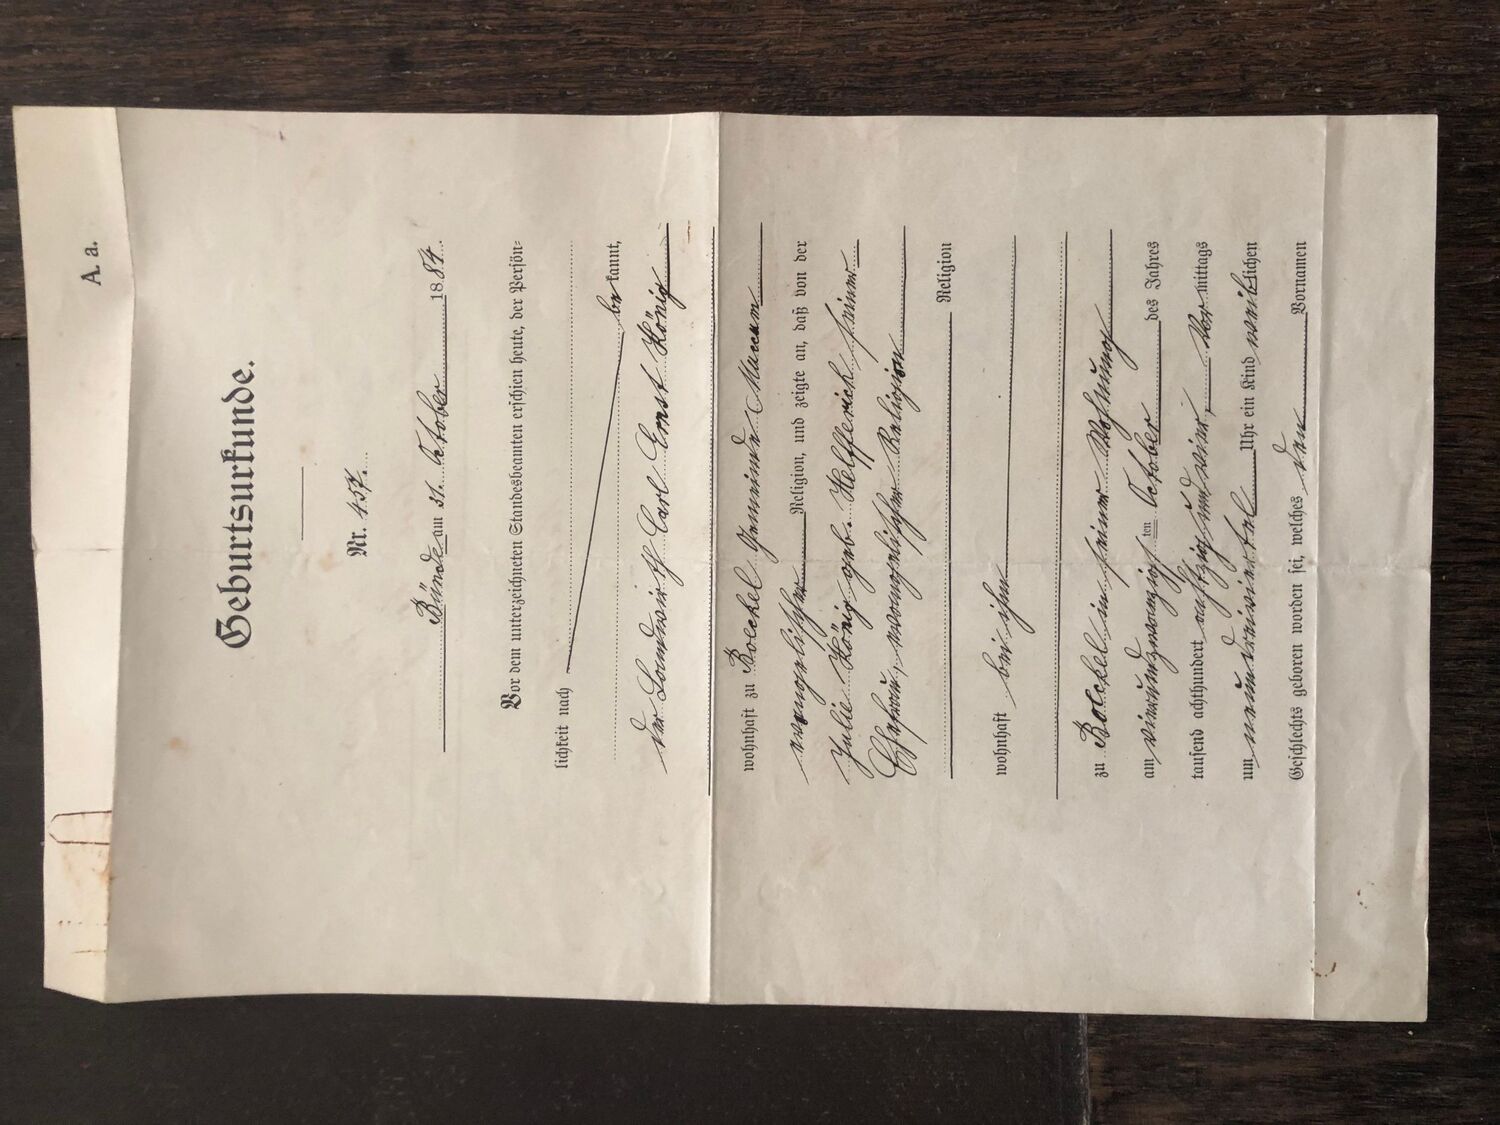 A. a.
Geburtsurkunde.
Nr. 457.
Bünde am 31. October 1884.
Vor dem unterzeichneten Standesbeamten erschien heute, der Persön-
lichkeit nach
bekannt,
der Landwirth Carl Ernst König
wohnhaft zu Bolckel Gemeinde
evangelischer Religion, und zeigte an, daß von der
Julie König geb. Helfferich seiner
Ehefrau, evangelischer Religion
Religion
wohnhaft bei ihm
zu Bolckel in seiner Wohnung
am vierundzwanzigsten October des Jahres
tausend achthundert achtzig und vier, Vormittags
um neundreiviertel Uhr ein Kind weiblichen
Geschlechts geboren worden sei, welches den Vornamen